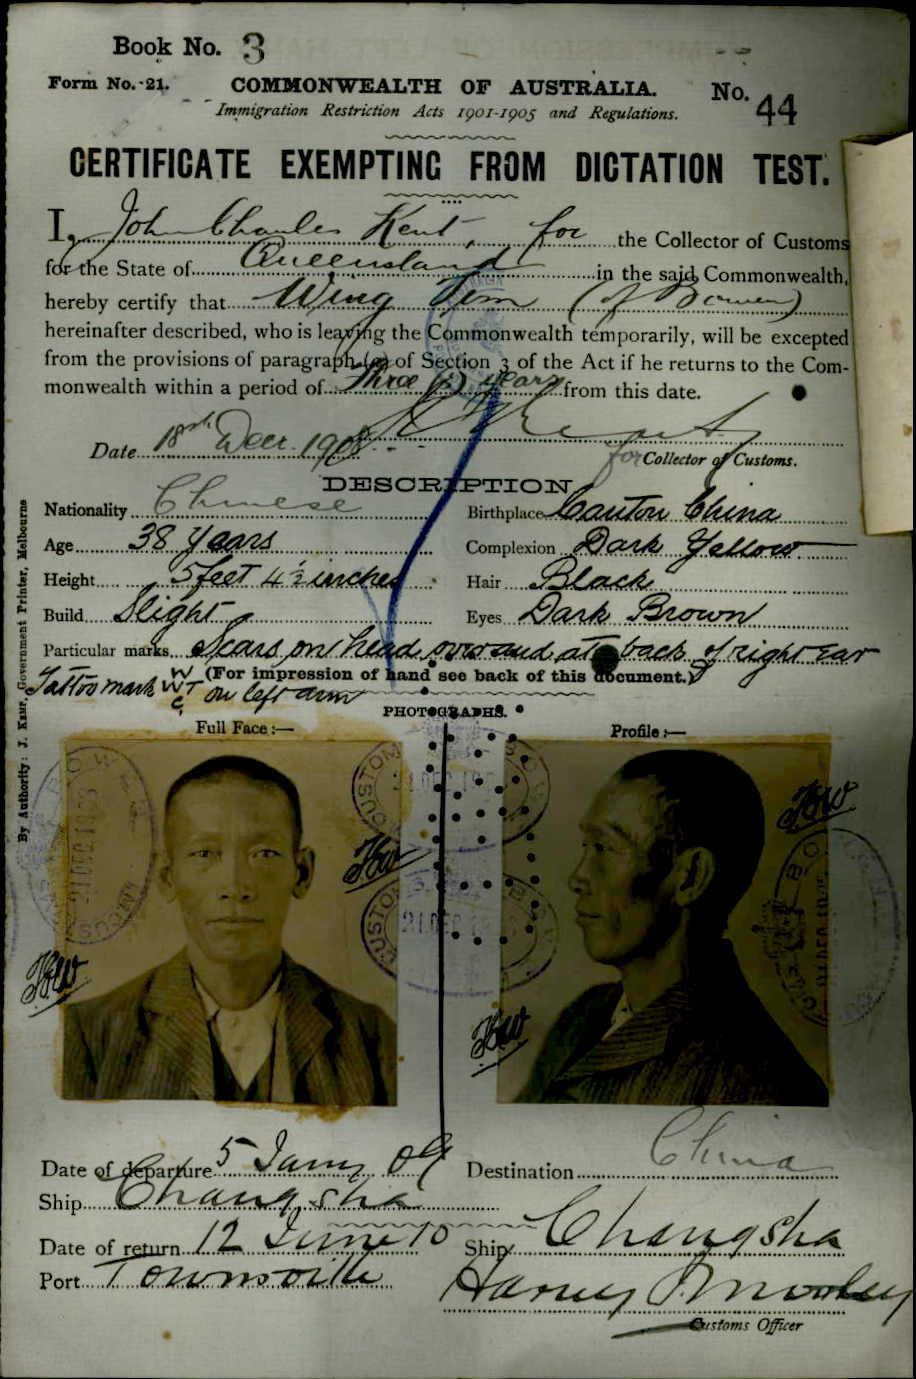 Book No. 3
Form No. 21.
COMMONWEALTH OF AUSTRALIA.
No. 44
Immigration Restriction Acts 1901-1905 and Regulations.
CERTIFICATE EXEMPTING FROM DICTATION TEST.
I, John Charles Kent, for the Collector of Customs
for the State of Queensland in the said Commonwealth,
hereby certify that Wing Tom (of Bowen)
hereinafter described, who is leaving the Commonwealth temporarily, will be excepted
from the provisions of paragraph (a) of Section 3 of the Act if he returns to the Com-
monwealth within a period of Three (3) years from this date.
Date 18th Decr. 1908
for Collector of Customs.
DESCRIPTION
Nationality Chinese
Birthplace Canton China
Age 38 Years
Complexion Dark Yellow
Height 5 feet 4½ inches
Hair Black
Build Slight
Eyes Dark Brown
Particular marks Scars on head, over and at back of right ear
(For impression of hand see back of this document.)
Tattoo mark W WT C on left arm
PHOTOGRAPHS.
Full Face :—
Profile :—
By Authority: J. Kemp, Government Printer, Melbourne
CUSTOMS
21 DEC
Date of departure 5 Jany 09
Destination China
Ship Changsha
Date of return 12 June 10
Ship Changsha
Port Townsville
Customs Officer